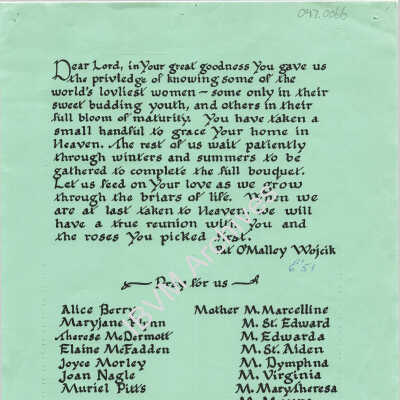 047.0066
Dear Lord, in Your great goodness You gave us
the priviledge of knowing some of the
world's lovliest women – some only in their
sweet budding youth, and others in their
full bloom of maturity. You have taken a
small handful to grace Your home in
Heaven. The rest of us wait patiently
through winters and summers to be
gathered to complete the full bouquet.
Let us feed on Your love as we grow
through the briars of life. When we
are at last taken to Heaven, we will
have a true reunion with You and
the roses You picked first.
Pat O'Malley Wojcik
6'51
Pray for us
Alice Berry Mother M. Marcelline
Maryjane Flynn M. St. Edward
Therese McDermott M. Edwarda
Elaine McFadden M. St. Aiden
Joyce Morley M. Dymphna
Joan Nagle M. Virginia
Muriel Pitts M. Mary Theresa
BVM Archives